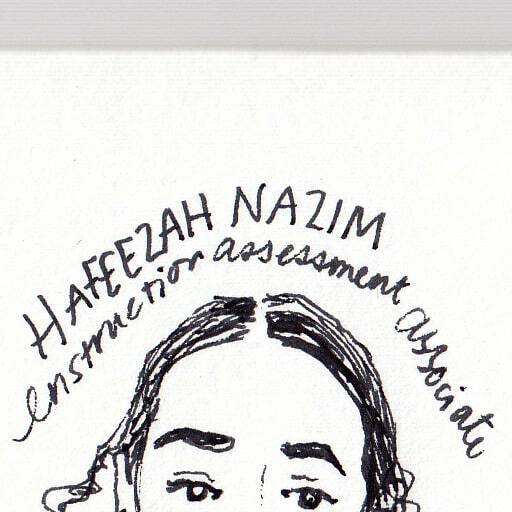 HAFEEZAH NAZIM
instruction assessment associate